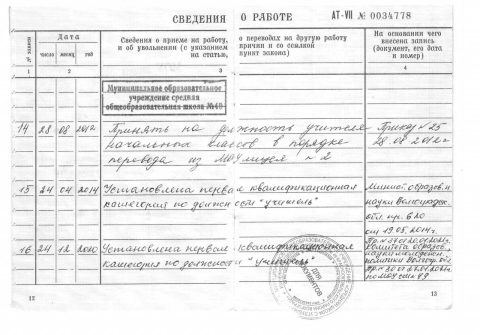 СВЕДЕНИЯ О РАБОТЕ АТ-VII № 0034778
№ записи
Дата
число месяц год
Сведения о приеме на работу, о переводах на другую работу
и об увольнении (с указанием причин и со ссылкой
на статью, пункт закона)
На основании чего
внесена запись
(документ, его дата
и номер)
1 2 3 4
Муниципальное образовательное
учреждение средняя
общеобразовательная школа №49
14 28 08 2012 Принять на должность учителя Приказ № 25
начальных классов в порядке 28.08.2012г.
перевода из МОУ лицея № 2
15 24 04 2014 Установлена первая квалификационная Минист. образов. и
категория по должности "учитель" науки Волгоградск.
обл. пр. 620
от 19.05.2014г.
16 24 12 2020 Установлена первая квалификационная
категория по должности "учитель"
ДЛЯ
ДОКУМЕНТОВ
12 13